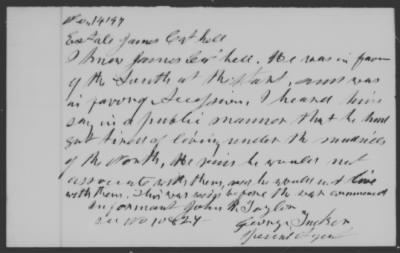 No 14197
Estate James Cathell
I know James Cathell. He was in favor
of the South at the start, and was
in favor of Secession, I heard him
say in a public manner that he had
got tired of living under the
of the North, He said he would not
associate with them, and he would not live
with them. This was before the war commenced
Informant John R. Taylor
see No 10824
George Tucker
Special Agent